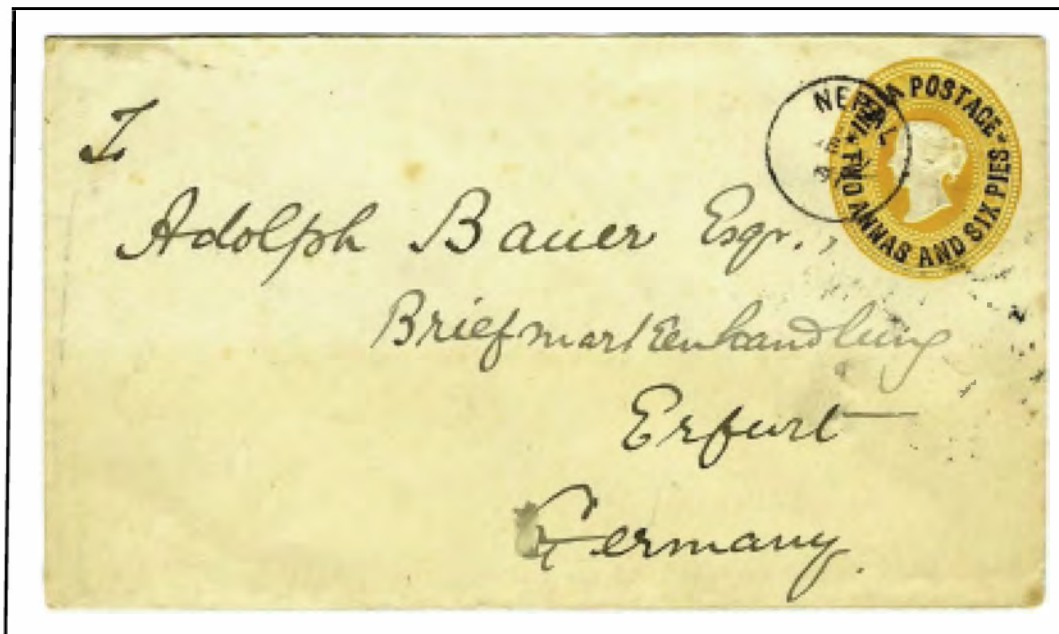 To
Adolph Bauer Esqr.,
Briefmarkenhandlung
Erfurt
Germany.
NEPAL
INDIA POSTAGE
TWO ANNAS AND SIX PIES